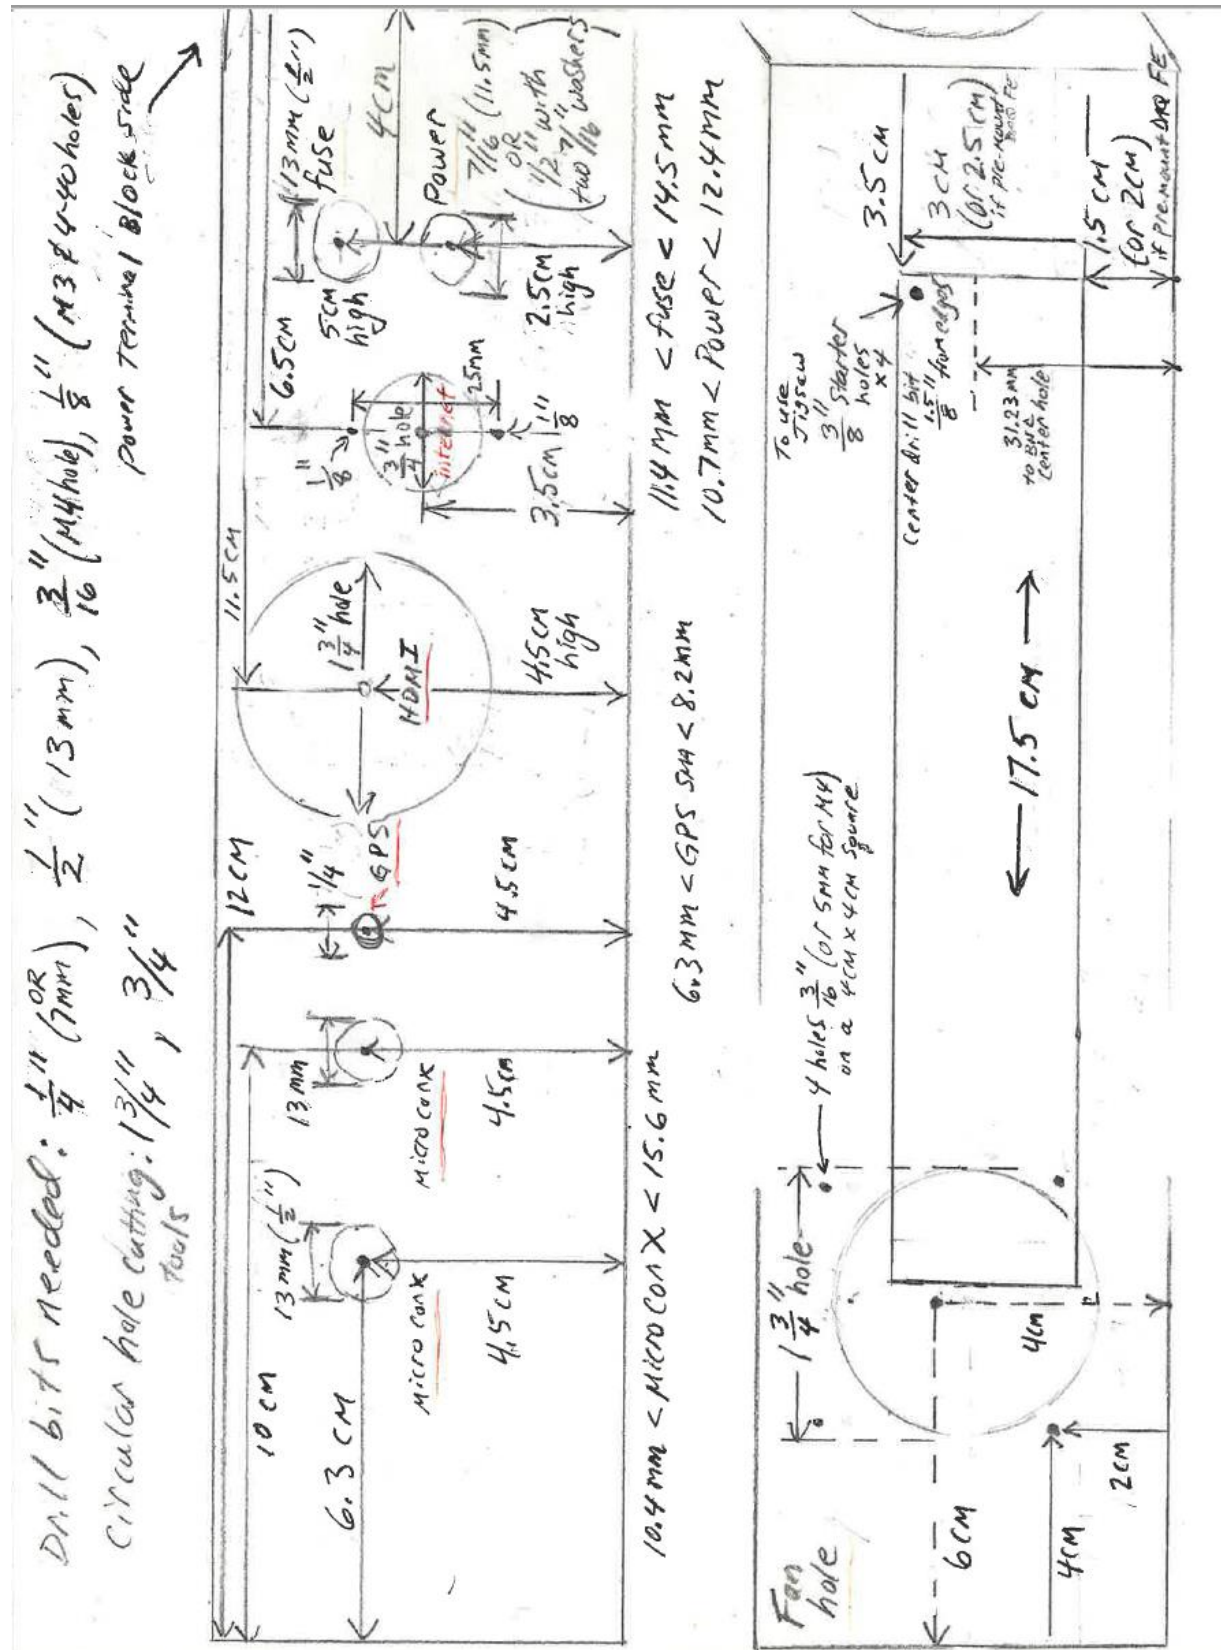 Drill bits needed: 1/4" (OR 7mm), 1/2" (13mm), 3/16" (M4 hole), 1/8" (M3 & 4-40 holes)
Circular hole cutting: 1 3/4", 3/4"
tools
Power Terminal Block side
10 CM
12 CM
11.5 CM
6.5 CM
4 CM
6.3 CM
13 mm (1/2")
MICRO CONX
4.5 CM
13 mm
MICRO CONX
4.5 CM
1/4"
GPS
4.5 CM
1 3/4" hole
HDMI
4.5 CM
high
1/8"
3/4" hole
internet
25mm
1/8"
3.5 CM
13 mm (1/2")
fuse
5 CM
high
Power
7/16" (11.5mm)
OR
1/2" with
two 7/16" washers
2.5 CM
high
10.4 mm < MICRO CON X < 15.6 mm
6.3 MM < GPS SMA < 8.2 MM
11.4 MM < fuse < 14.5 mm
10.7 mm < Power < 12.4 mm
Fan
hole
1 3/4" hole
4 holes 3/16" (or 5MM for M4)
on a 4CM x 4CM square
6 CM
4 CM
4 CM
2 CM
17.5 CM
To use
Jigsaw
3/8" starter
holes
x4
center drill bit
1.5"/8 from edges
31.23 mm
to BNC
center hole
3.5 CM
3 CM
(or 2.5 CM)
if pre-mount
DAQ FE
1.5 CM
(or 2CM)
if pre-mount DAQ FE